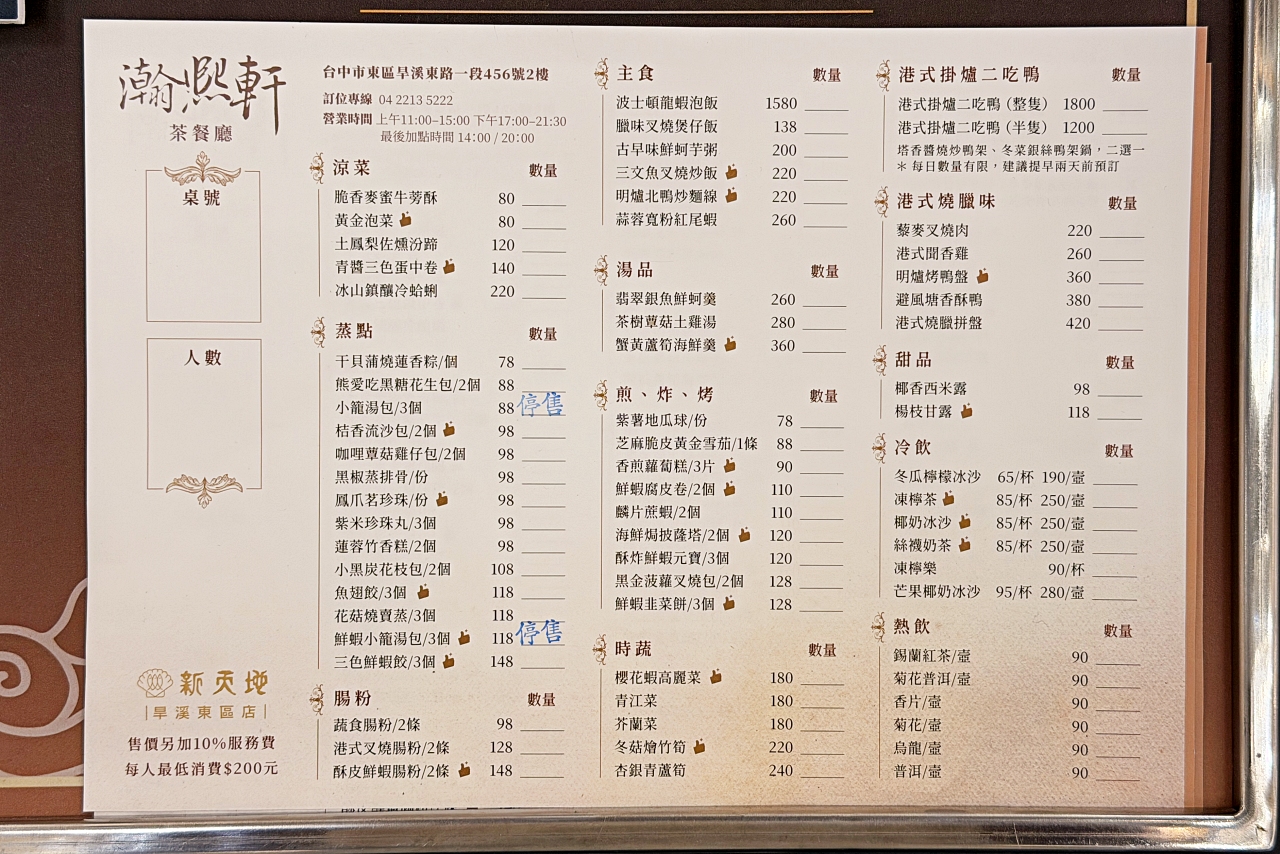 瀚熙軒
茶餐廳
桌號
人數
新天地
旱溪東區店
售價另加10%服務費
每人最低消費$200元
台中市東區旱溪東路一段456號2樓
訂位專線 04 2213 5222
營業時間 上午11:00–15:00 下午17:00–21:30
最後加點時間 14:00 / 20:00
涼菜 數量
脆香麥蜜牛蒡酥 80
黃金泡菜 80
土鳳梨佐燻汾蹄 120
青醬三色蛋中卷 140
冰山鎮釀冷蛤蜊 220
蒸點 數量
干貝蒲燒蓮香粽/個 78
熊愛吃黑糖花生包/2個 88
小籠湯包/3個 88 停售
桔香流沙包/2個 98
咖哩蕈菇雞仔包/2個 98
黑椒蒸排骨/份 98
鳳爪茗珍珠/份 98
紫米珍珠丸/3個 98
蓮蓉竹香糕/2個 98
小黑炭花枝包/2個 108
魚翅餃/3個 118
花菇燒賣蒸/3個 118
鮮蝦小籠湯包/3個 118 停售
三色鮮蝦餃/3個 148
腸粉 數量
蔬食腸粉/2條 98
港式叉燒腸粉/2條 128
酥皮鮮蝦腸粉/2條 148
主食 數量
波士頓龍蝦泡飯 1580
臘味叉燒煲仔飯 138
古早味鮮蚵芋粥 200
三文魚叉燒炒飯 220
明爐北鴨炒麵線 220
蒜蓉寬粉紅尾蝦 260
湯品 數量
翡翠銀魚鮮蚵羹 260
茶樹蕈菇土雞湯 280
蟹黃蘆筍海鮮羹 360
煎、炸、烤 數量
紫薯地瓜球/份 78
芝麻脆皮黃金雪茄/1條 88
香煎蘿蔔糕/3片 90
鮮蝦腐皮卷/2個 110
麟片蔗蝦/2個 110
海鮮焗披薩塔/2個 120
酥炸鮮蝦元寶/3個 120
黑金菠蘿叉燒包/2個 128
鮮蝦韭菜餅/3個 128
時蔬 數量
櫻花蝦高麗菜 180
青江菜 180
芥蘭菜 180
冬菇燴竹筍 220
杏銀青蘆筍 240
港式掛爐二吃鴨 數量
港式掛爐二吃鴨（整隻） 1800
港式掛爐二吃鴨（半隻） 1200
塔香醬燒炒鴨架、冬菜銀絲鴨架鍋，二選一
＊每日數量有限，建議提早兩天前預訂
港式燒臘味 數量
藜麥叉燒肉 220
港式聞香雞 260
明爐烤鴨盤 360
避風塘香酥鴨 380
港式燒臘拼盤 420
甜品 數量
椰香西米露 98
楊枝甘露 118
冷飲 數量
冬瓜檸檬冰沙 65/杯 190/壺
凍檸茶 85/杯 250/壺
椰奶冰沙 85/杯 250/壺
絲襪奶茶 85/杯 250/壺
凍檸樂 90/杯
芒果椰奶冰沙 95/杯 280/壺
熱飲 數量
錫蘭紅茶/壺 90
菊花普洱/壺 90
香片/壺 90
菊花/壺 90
烏龍/壺 90
普洱/壺 90